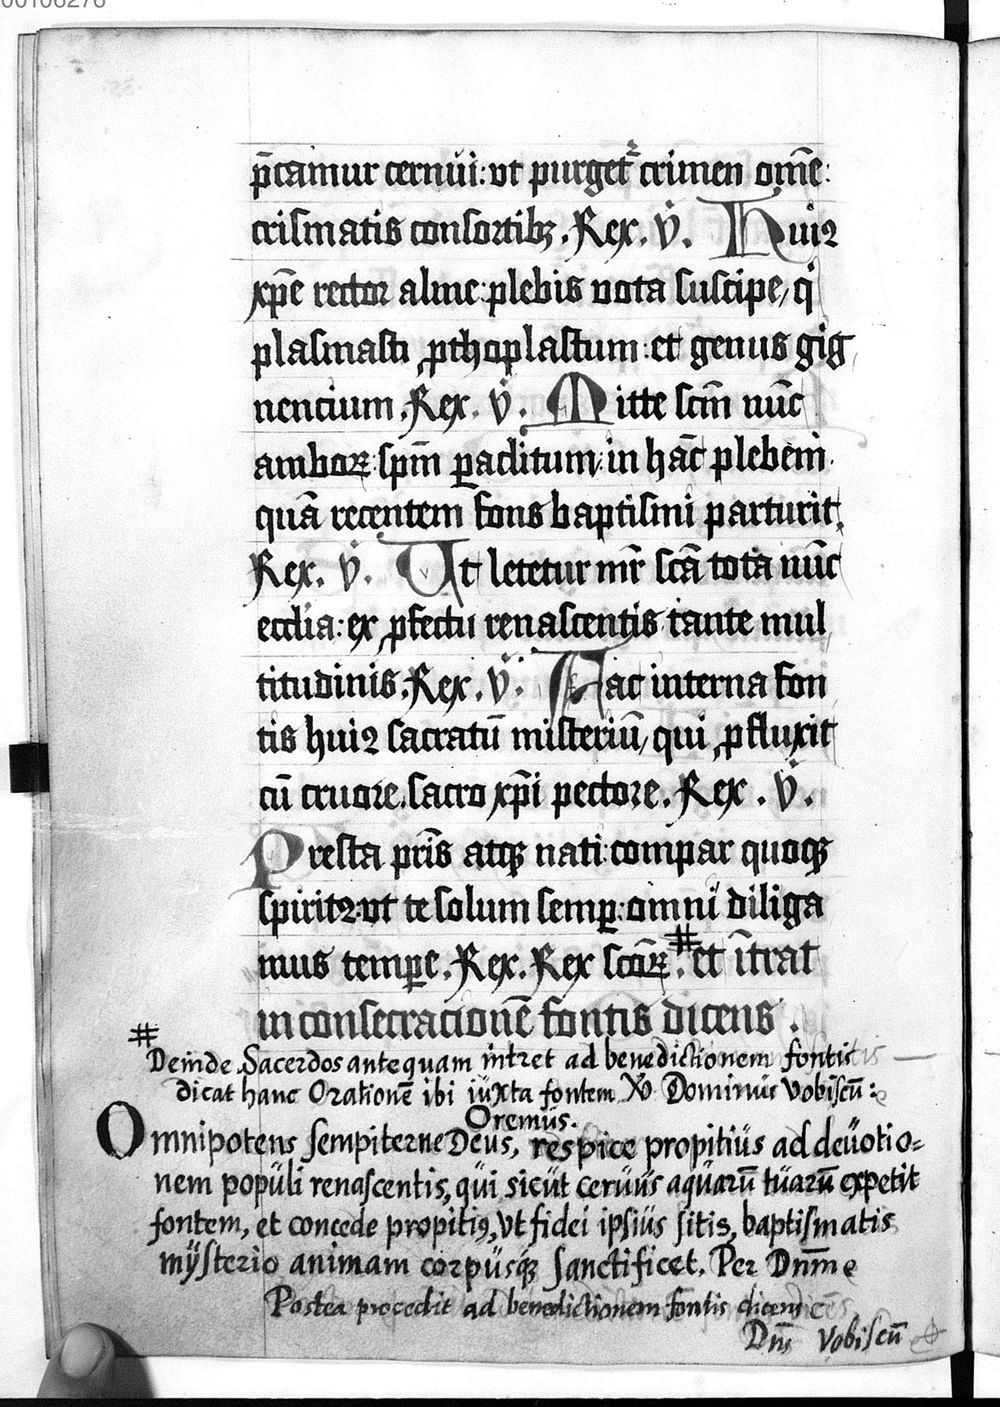 00106276
p̄camur cernui: vt purget᷑ crimen om̄e:
crismatis consortibꝫ. Rex. v̇. Huiꝰ
xp̄e rector alme: plebis vota suscipe, qͥ
plasmasti ꝓthoplastum: et genus gig
nencium. Rex. v̇. Mitte sc̄m nūc
amboꝝ: sp̄m ꝑaclitum: in hāc plebem
quā recentem fons baptismi parturit.
Rex. v̇. Ut letetur mr̄ sc̄a tota nūc
eccl̄ia: ex ꝓfectu renascentis tante mul
titudinis. Rex. v̇. Hac interna fon
tis huiꝰ sacratū misteriū, qui ꝓfluxit
cū cruore sacro xp̄i pectore. Rex. v̇.
Presta pr̄is atqꝫ nati: compar quoqꝫ
spiritꝰ: vt te solum semꝑ: omni diliga
mus temꝑe. Rex. Rex sc̄oꝝ. # et īt̄rat
in consecracionē fontis dicens.
# Deinde Sacerdos antequam intret ad benedictionem fontis
dicat hanc Orationē ibi iuxta fontem ℣ Dominus Vobiscū:
Oremus.
Omnipotens sempiterne Deus, respice propitius ad deuotio=
nem populi renascentis, qui sicut ceruus aquarū tuarū expetit
fontem, et concede propitiꝰ, Vt fidei ipsius sitis, baptismatis
mysterio animam corpusqꝫ sanctificet. Per Dn̄m e
Postea procedit ad benedictionem fontis dicens
Dn̄s Vobiscū